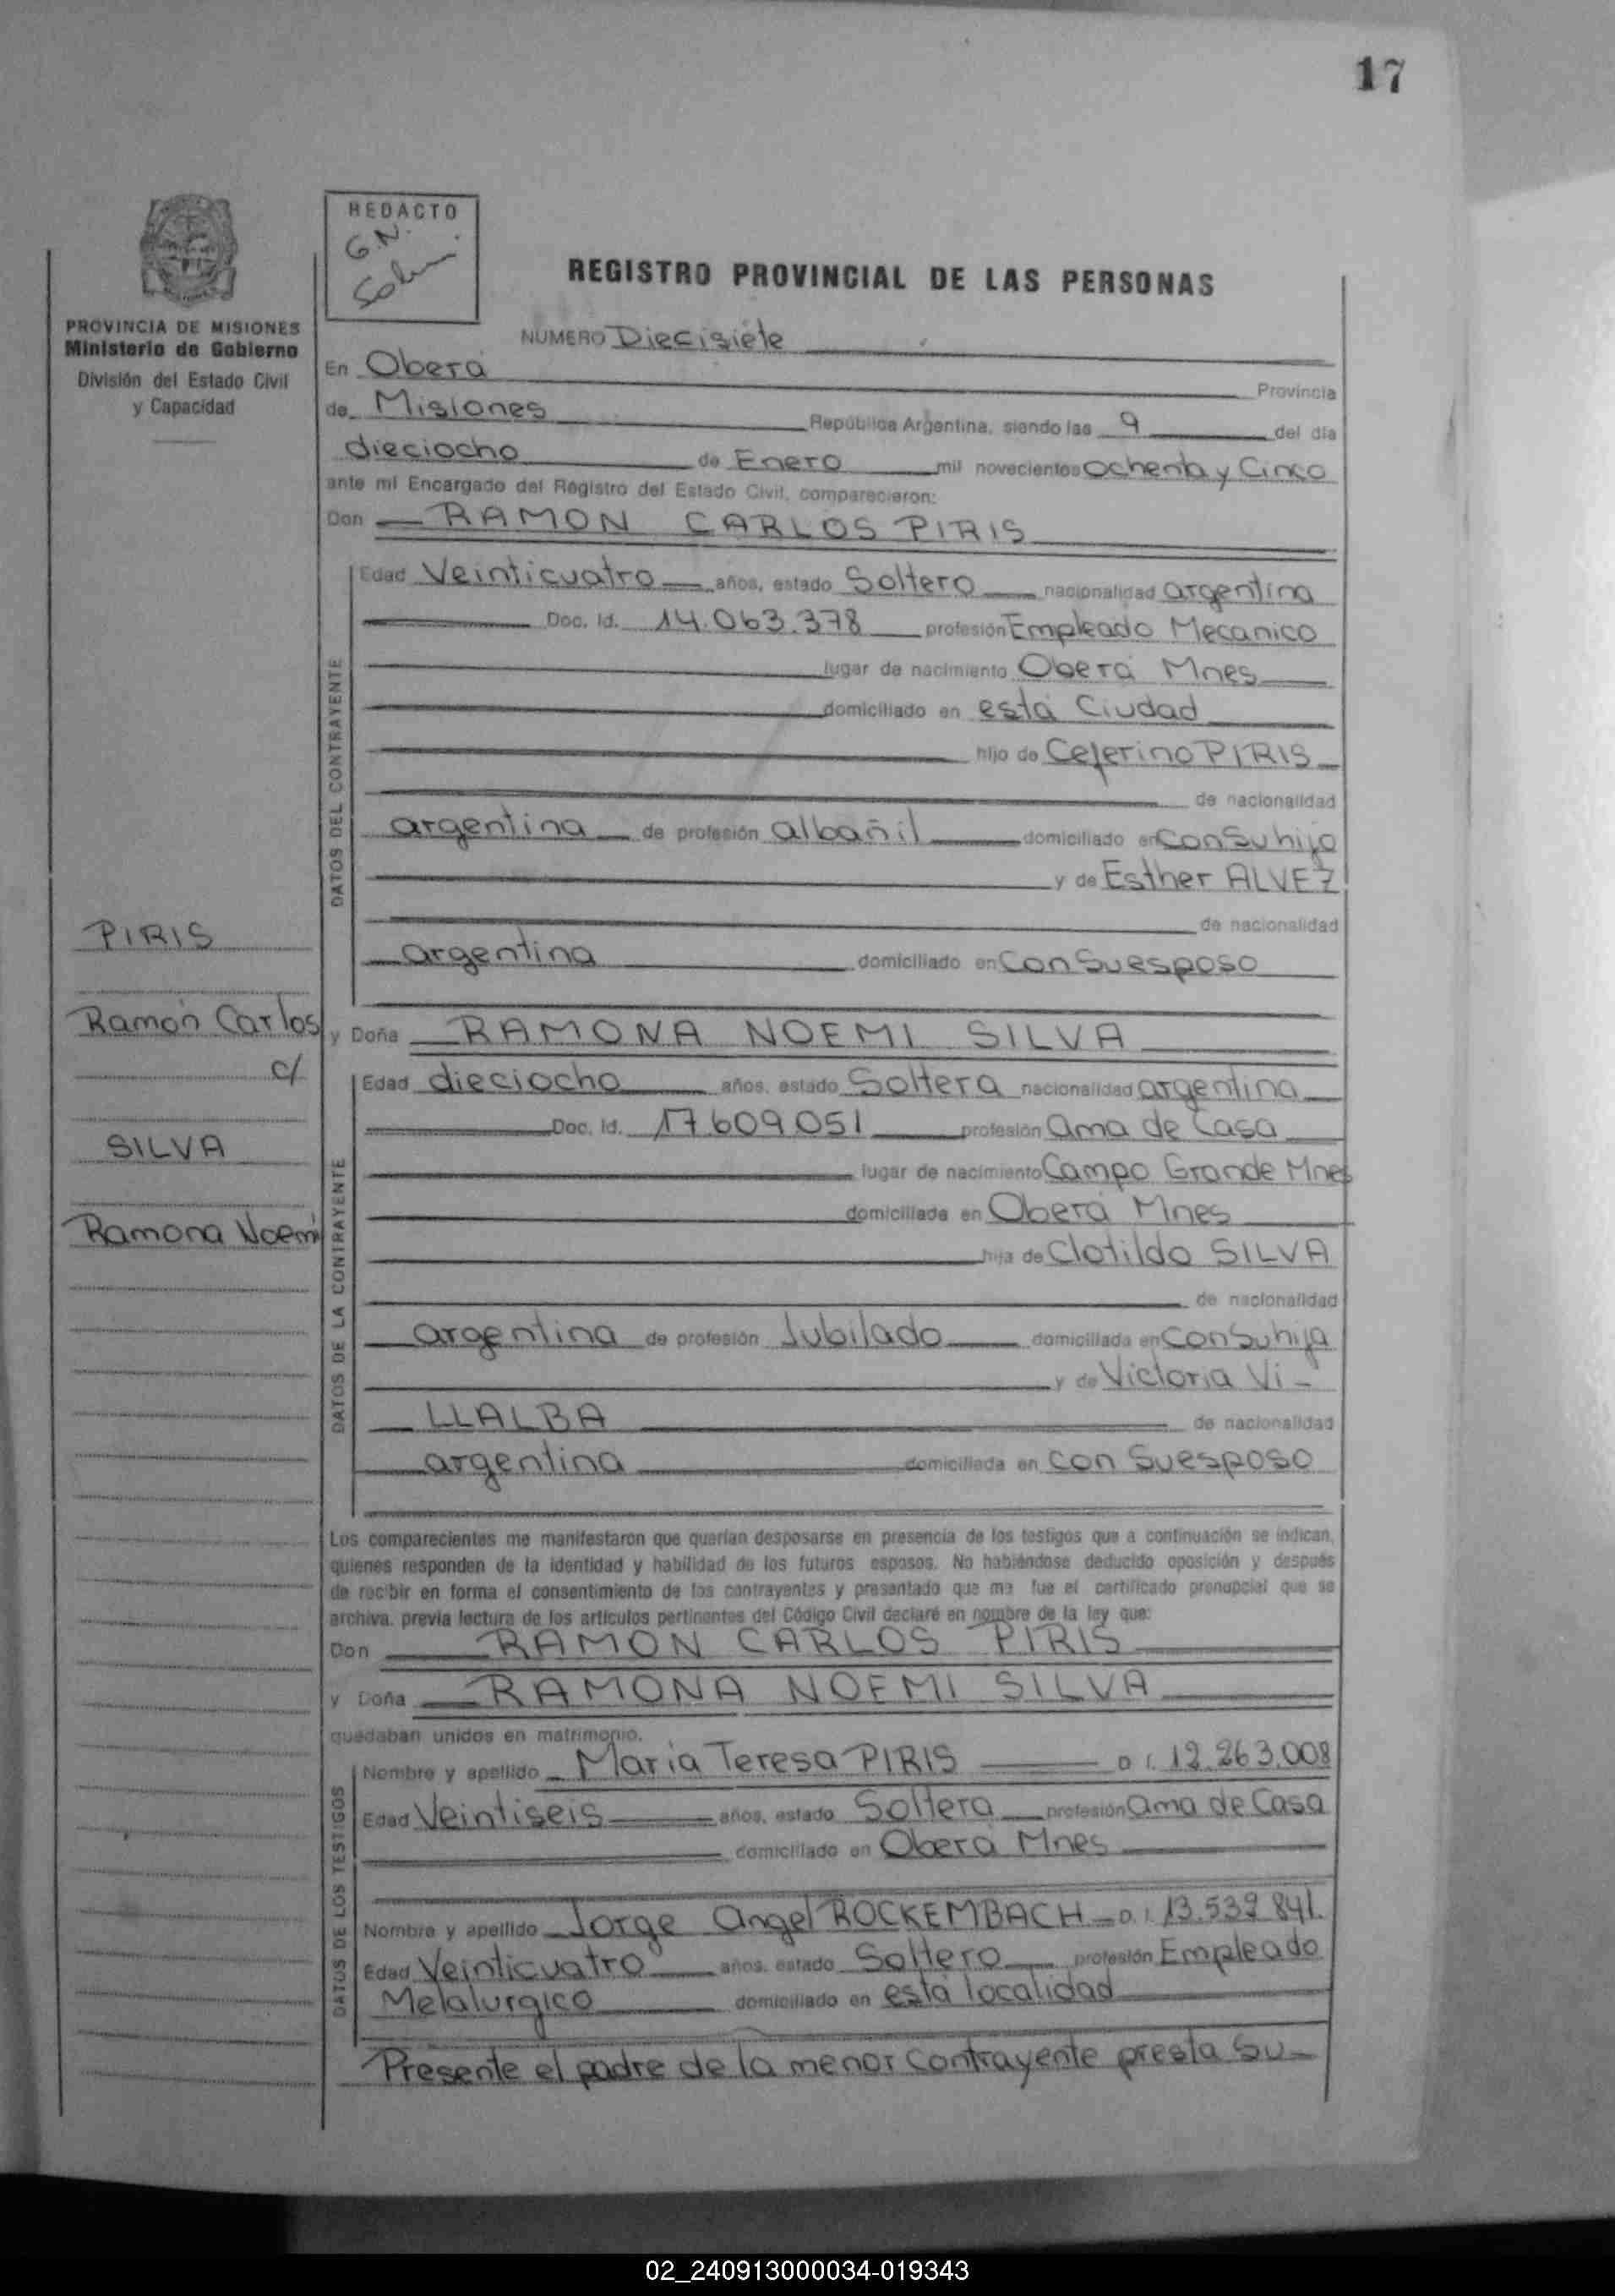 17
REDACTO
G.N.
REGISTRO PROVINCIAL DE LAS PERSONAS
PROVINCIA DE MISIONES
Ministerio de Gobierno
División del Estado Civil
y Capacidad
NUMERO Diecisiete
En Oberá Provincia
de Misiones República Argentina, siendo las 9 del día
dieciocho de Enero mil novecientos ochenta y Cinco
ante mí Encargado del Registro del Estado Civil, comparecieron:
Don RAMON CARLOS PIRIS
DATOS DEL CONTRAYENTE
Edad Veinticuatro años, estado Soltero nacionalidad argentina
Doc. Id. 14.063.378 profesión Empleado Mecanico
lugar de nacimiento Oberá Mnes
domiciliado en está Ciudad
hijo de Ceferino PIRIS
de nacionalidad
argentina de profesión albañil domiciliado en con su hijo
y de Esther ALVEZ
de nacionalidad
argentina domiciliado en con su esposo
PIRIS
Ramón Carlos
c/
SILVA
Ramona Noemí
y Doña RAMONA NOEMI SILVA
DATOS DE LA CONTRAYENTE
Edad dieciocho años, estado Soltera nacionalidad argentina
Doc. Id. 17.609.051 profesión ama de Casa
lugar de nacimiento Campo Grande Mnes
domiciliada en Oberá Mnes
hija de Clotildo SILVA
de nacionalidad
argentina de profesión Jubilado domiciliada en con su hija
y de Victoria Vi-
LLALBA de nacionalidad
argentina domiciliada en con su esposo
Los comparecientes me manifestaron que querían desposarse en presencia de los testigos que a continuación se indican,
quienes responden de la identidad y habilidad de los futuros esposos. No habiéndose deducido oposición y después
de recibir en forma el consentimiento de los contrayentes y presentado que me fue el certificado prenupcial que se
archiva, previa lectura de los artículos pertinentes del Código Civil declaré en nombre de la ley que:
Don RAMON CARLOS PIRIS
y Doña RAMONA NOEMI SILVA
quedaban unidos en matrimonio.
DATOS DE LOS TESTIGOS
Nombre y apellido María Teresa PIRIS D.I. 12.263.008
Edad Veintiseis años, estado Soltera profesión ama de Casa
domiciliado en Oberá Mnes
Nombre y apellido Jorge angel ROCKEMBACH D.I. 13.532.841
Edad Veinticuatro años, estado Soltero profesión Empleado
Metalurgico domiciliado en está localidad
Presente el padre de la menor contrayente presta su-
02_240913000034-019343